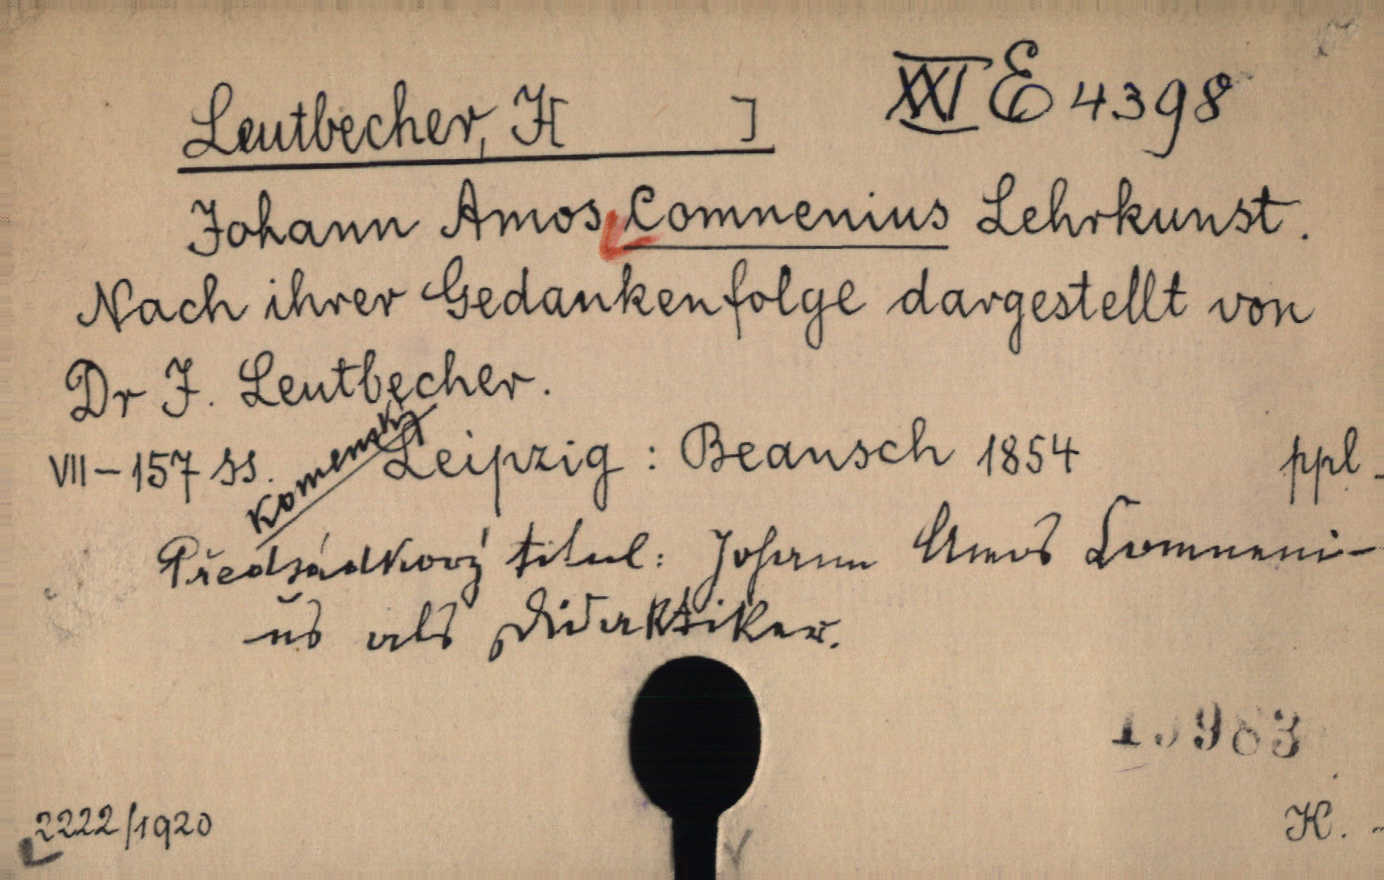 XXI E 4398
Leutbecher, J[ ]
Johann Amos Comnenius Lehrkunst.
Nach ihrer Gedankenfolge dargestellt von
Dr J. Leutbecher.
VII – 157 ss. Leipzig : Beansch 1854 ppl.
Komenský
Předsádkový titul: Johann Amos Comneni-
us als Didaktiker.
2222/1920
K.